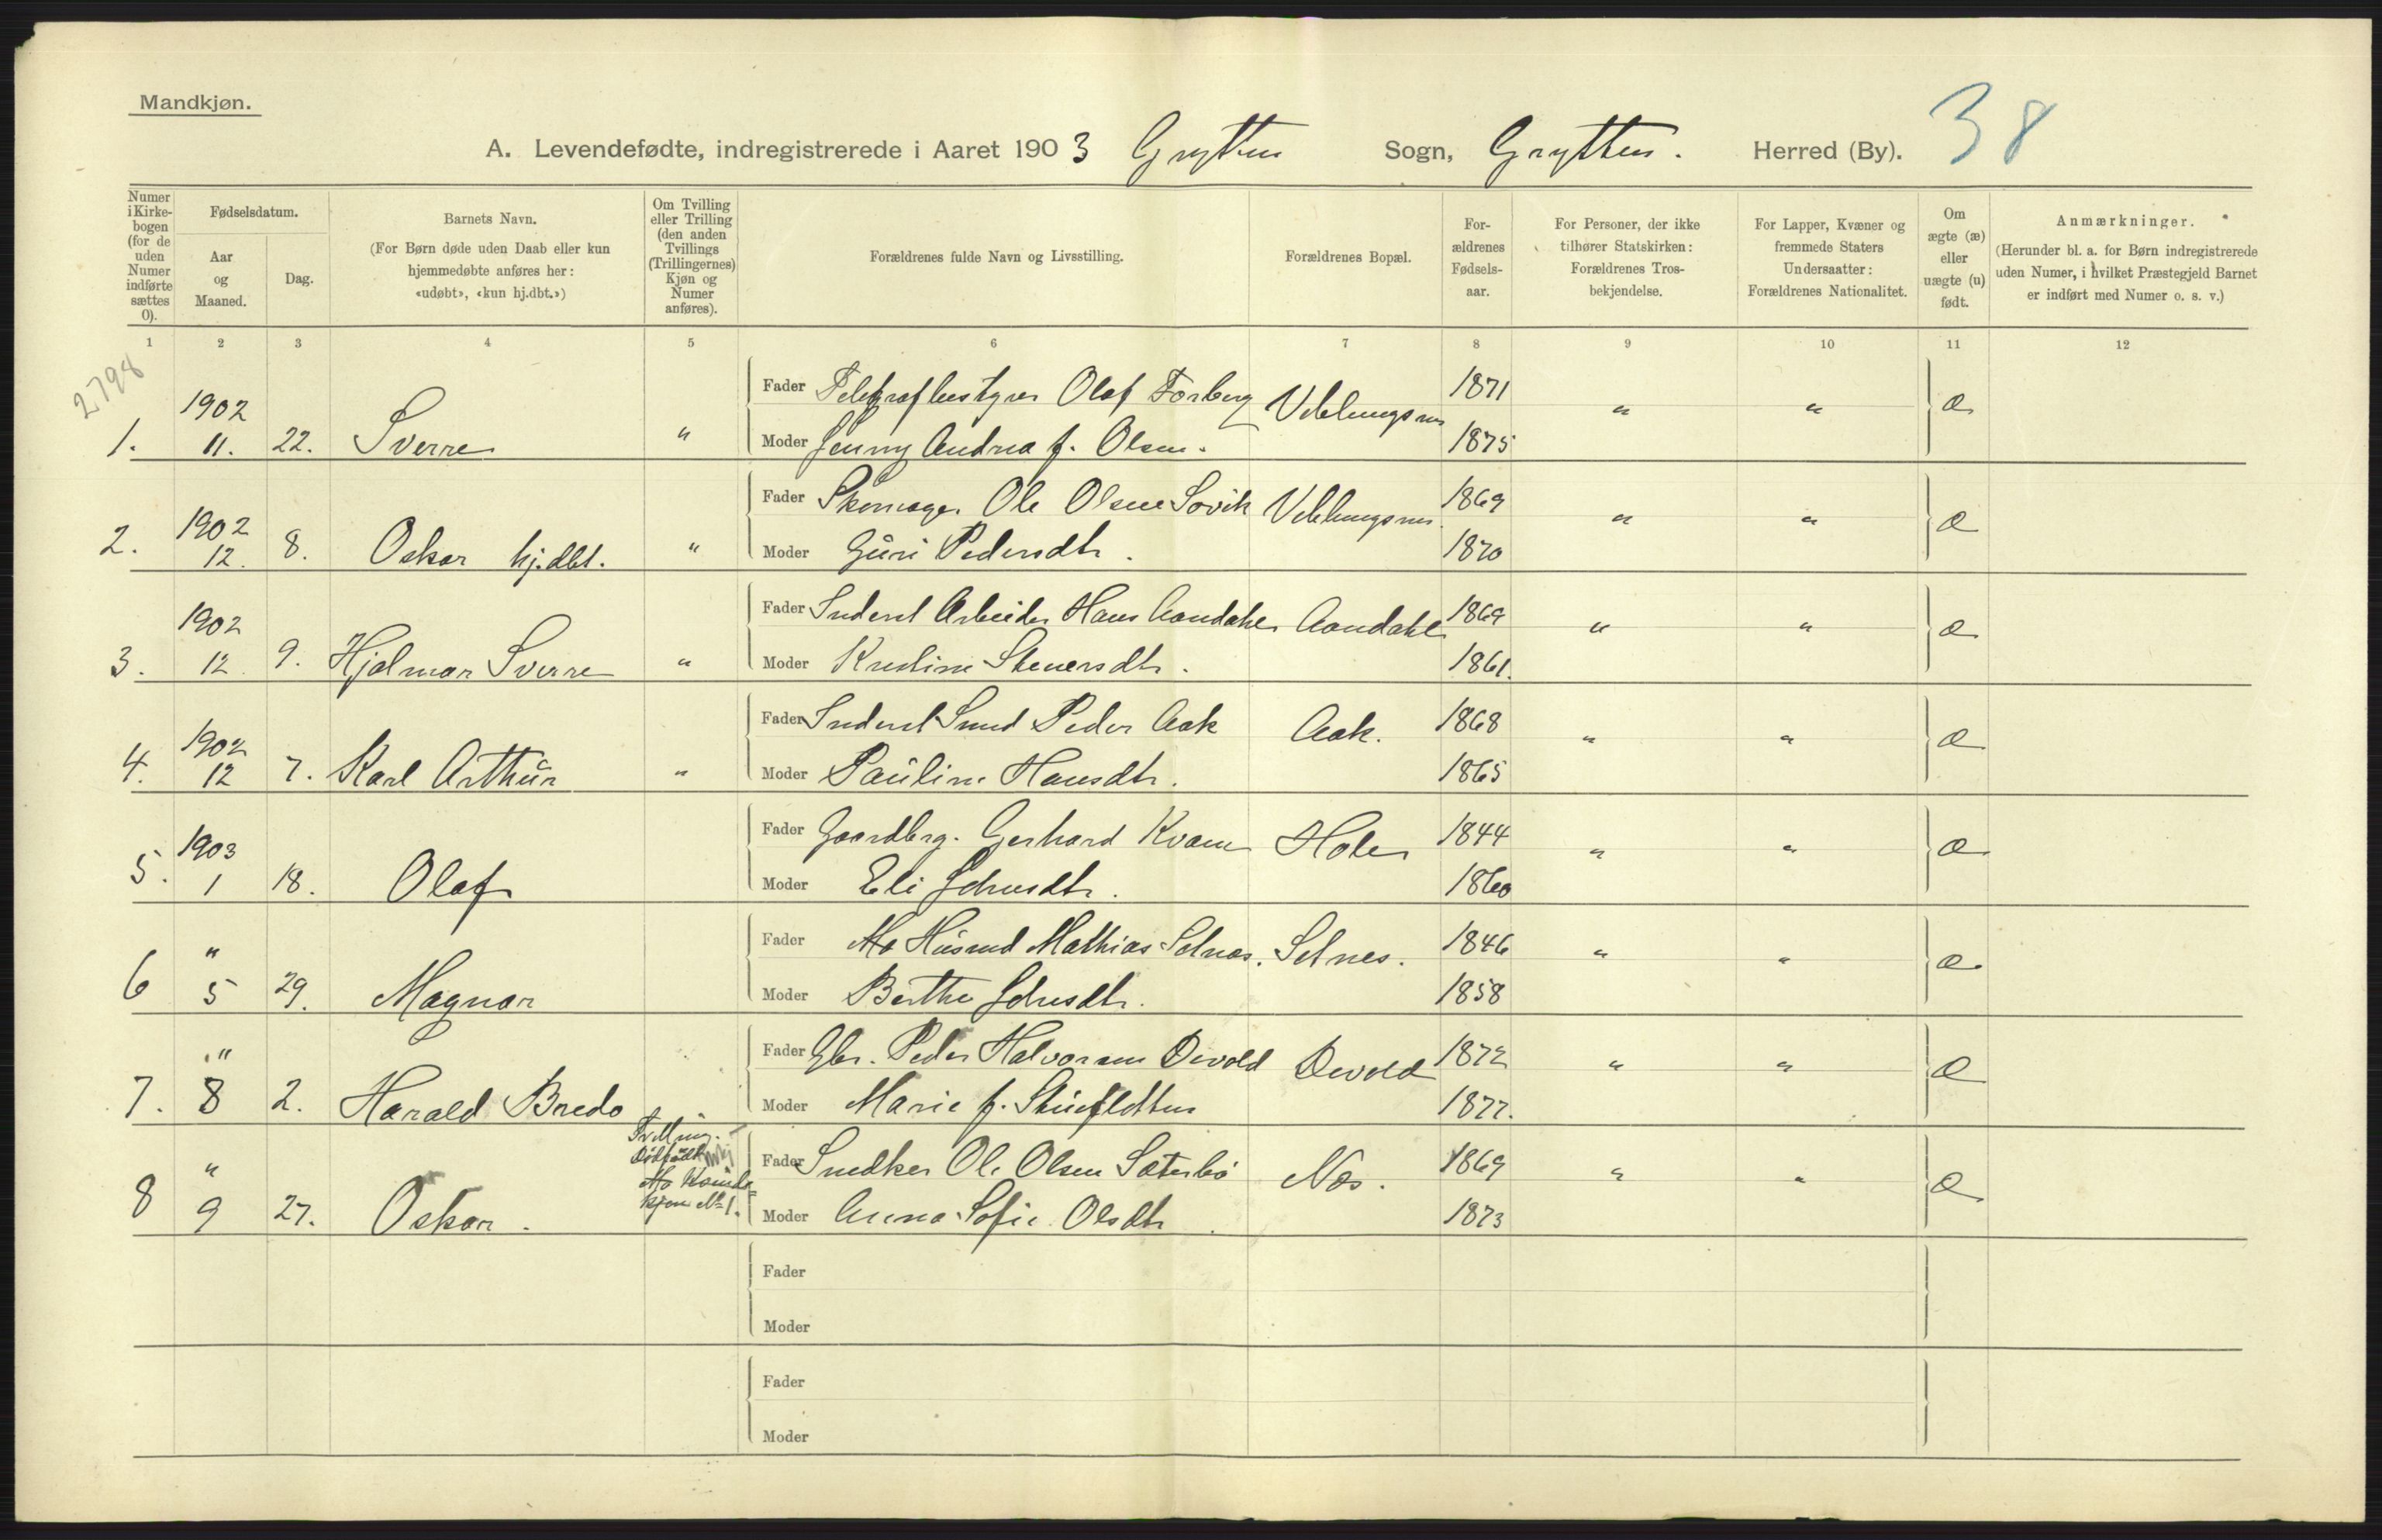 Mandkjøn.
38
A. Levendefødte, indregistrerede i Aaret 1903 Grytten Sogn, Grytten. Herred (By).
Numer i Kirke-bogen (for de uden Numer indførte sættes 0).
Fødselsdatum.
Aar og Maaned.
Dag.
Barnets Navn.
(For Børn døde uden Daab eller kun hjemmedøbte anføres her: «udøbt», «kun hj.dbt.»)
Om Tvilling eller Trilling (den anden Tvillings (Trillingernes) Kjøn og Numer anføres).
Forældrenes fulde Navn og Livsstilling.
Forældrenes Bopæl.
For-ældrenes Fødsels-aar.
For Personer, der ikke tilhører Statskirken: Forældrenes Tros-bekjendelse.
For Lapper, Kvæner og fremmede Staters Undersaatter: Forældrenes Nationalitet.
Om ægte (æ) eller uægte (u) født.
Anmærkninger.
(Herunder bl. a. for Børn indregistrerede uden Numer, i hvilket Præstegjeld Barnet er indført med Numer o. s. v.)
1 2 3 4 5 6 7 8 9 10 11 12
2798
1. 1902 11. 22. Sverre " Fader Telegrafbestyrer Olaf Forberg Veblungsnes 1871 " " æ
Moder Jenny Andrea f. Olsen. 1875
2. 1902 12. 8. Oskar hj.dbt. " Fader Skomager Ole Olsen Sovik Veblungsnes 1869 " " æ
Moder Guri Pedersdtr. 1870
3. 1902 12. 9. Hjalmar Sverre " Fader Inderst Arbeider Hans Aandahl Aandahl 1869 " " æ
Moder Kristine Steuersdtr. 1861.
4. 1902 12 7. Karl Arthur " Fader Inderst Smed Peder Aak Aak. 1868 " " æ
Moder Pauline Hansdtr. 1865
5. 1903 1 18. Olaf Fader Gaardbrg. Gerhard Kvam Hole 1844 " " æ
Moder Eli Johnsdtr. 1860
6 " 5 29. Magnar Fader Husmd Mathias Selnes. Selnes. 1846 " " æ
Moder Berthe Johnsdtr. 1858
7. " 8 2. Harald Bredo Fader Gbr. Peder Halvorsen Devold Devold 1872 " " æ
Moder Marie f. 1877.
8 " 9 27. Oskar. Tvilling. Dødfødt Kvindekjøn No 1. Fader Snedker Ole Olsen Sæterbø Næs. 1869 " " æ
Moder Anna Sofie Olsdtr. 1873
Fader
Moder
Fader
Moder